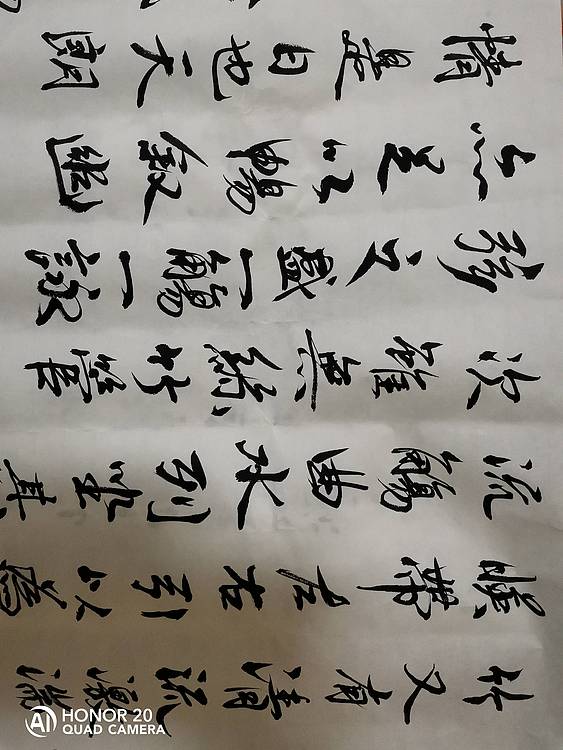 竹又有清流激湍
暎帶左右引以為
流觴曲水列坐其
次雖無絲竹管
弦之盛一觴一詠
亦足以暢敘幽
情是日也天朗
AI HONOR 20
QUAD CAMERA